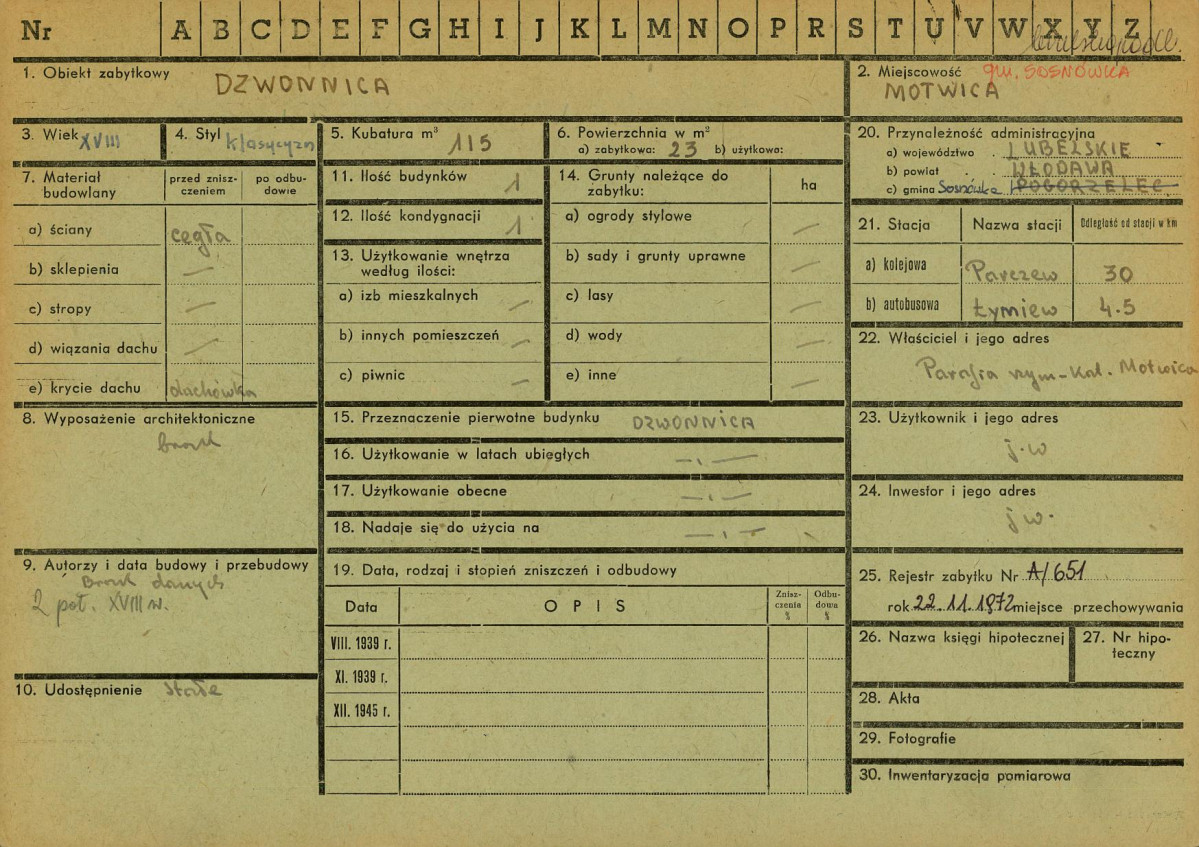 Nr A B C D E F G H I J K L M N O P R S T U V W X Y Z
1. Obiekt zabytkowy DZWONNICA
2. Miejscowość gm. SOSNÓWKA
MOTWICA
3. Wiek XVIII
4. Styl klasycyzm
5. Kubatura m³ 115
6. Powierzchnia w m²
a) zabytkowa: 23 b) użytkowa:
7. Materiał budowlany
przed zniszczeniem
po odbudowie
a) ściany cegła
b) sklepienia —
c) stropy —
d) wiązania dachu —
e) krycie dachu dachówka
8. Wyposażenie architektoniczne
brak
9. Autorzy i data budowy i przebudowy
Brak danych
2 poł. XVIII w.
10. Udostępnienie stałe
11. Ilość budynków 1
12. Ilość kondygnacji 1
13. Użytkowanie wnętrza
według ilości:
a) izb mieszkalnych —
b) innych pomieszczeń —
c) piwnic —
14. Grunty należące do
zabytku:
ha
a) ogrody stylowe —
b) sady i grunty uprawne —
c) lasy —
d) wody —
e) inne —
15. Przeznaczenie pierwotne budynku DZWONNICA
16. Użytkowanie w latach ubiegłych —,,—
17. Użytkowanie obecne —,,—
18. Nadaje się do użycia na —,,—
19. Data, rodzaj i stopień zniszczeń i odbudowy
Data OPIS Zniszczenia % Odbudowa %
VIII. 1939 r.
XI. 1939 r.
XII. 1945 r.
20. Przynależność administracyjna
a) województwo LUBELSKIE
b) powiat WŁODAWA
c) gmina Sosnówka POGORZELEC
21. Stacja Nazwa stacji Odległość od stacji w km
a) kolejowa Parczew 30
b) autobusowa Żymiew 4.5
22. Właściciel i jego adres
Parafia rzym-kat. Motwica
23. Użytkownik i jego adres
j.w
24. Inwestor i jego adres
j w.
25. Rejestr zabytku Nr A/651
rok 22.11.1972 miejsce przechowywania
26. Nazwa księgi hipotecznej
27. Nr hipoteczny
28. Akta
29. Fotografie
30. Inwentaryzacja pomiarowa